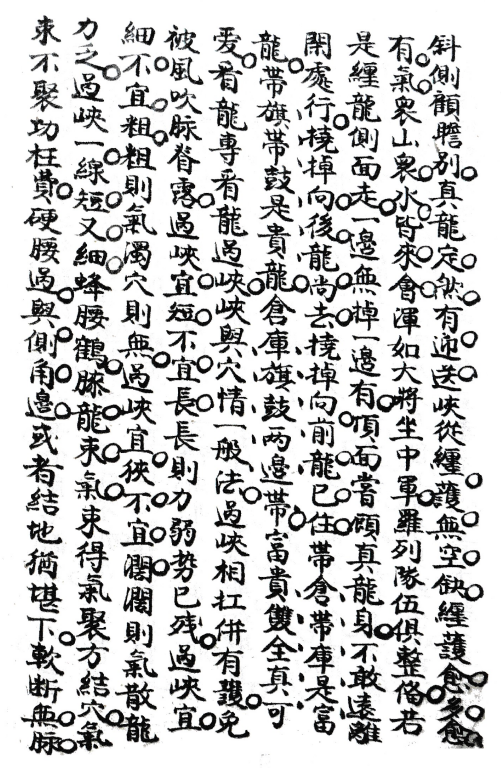 斜側顧瞻別真龍定然有迎送峽從纏護無空缺纏護愈多愈
有氣衆山衆水皆來會渾如大將坐中軍羅列隊伍俱整偹若
是纏龍側面走一邊無掉一邊有頂面當頭真龍身不敢遠離
閑處行橈掉向後龍尚去橈掉向前龍已住帶倉帶庫是富
龍帶旗帶鼓是貴龍倉庫旗鼓两邊帶富貴雙全真可
愛看龍專看龍過峽峽與穴情一般法過峽相扛併有護免
被風吹脉脊露過峽宜短不宜長長則力弱勢已残過峽宜
細不宜粗粗則氣濁穴則無過峽宜狹不宜濶濶則氣散龍
力乏過峽一線短又細蜂腰鶴膝龍束氣束得氣聚方結穴氣
束不聚功枉費硬腰過與側角邊或者結地猶堪下軟断無脉